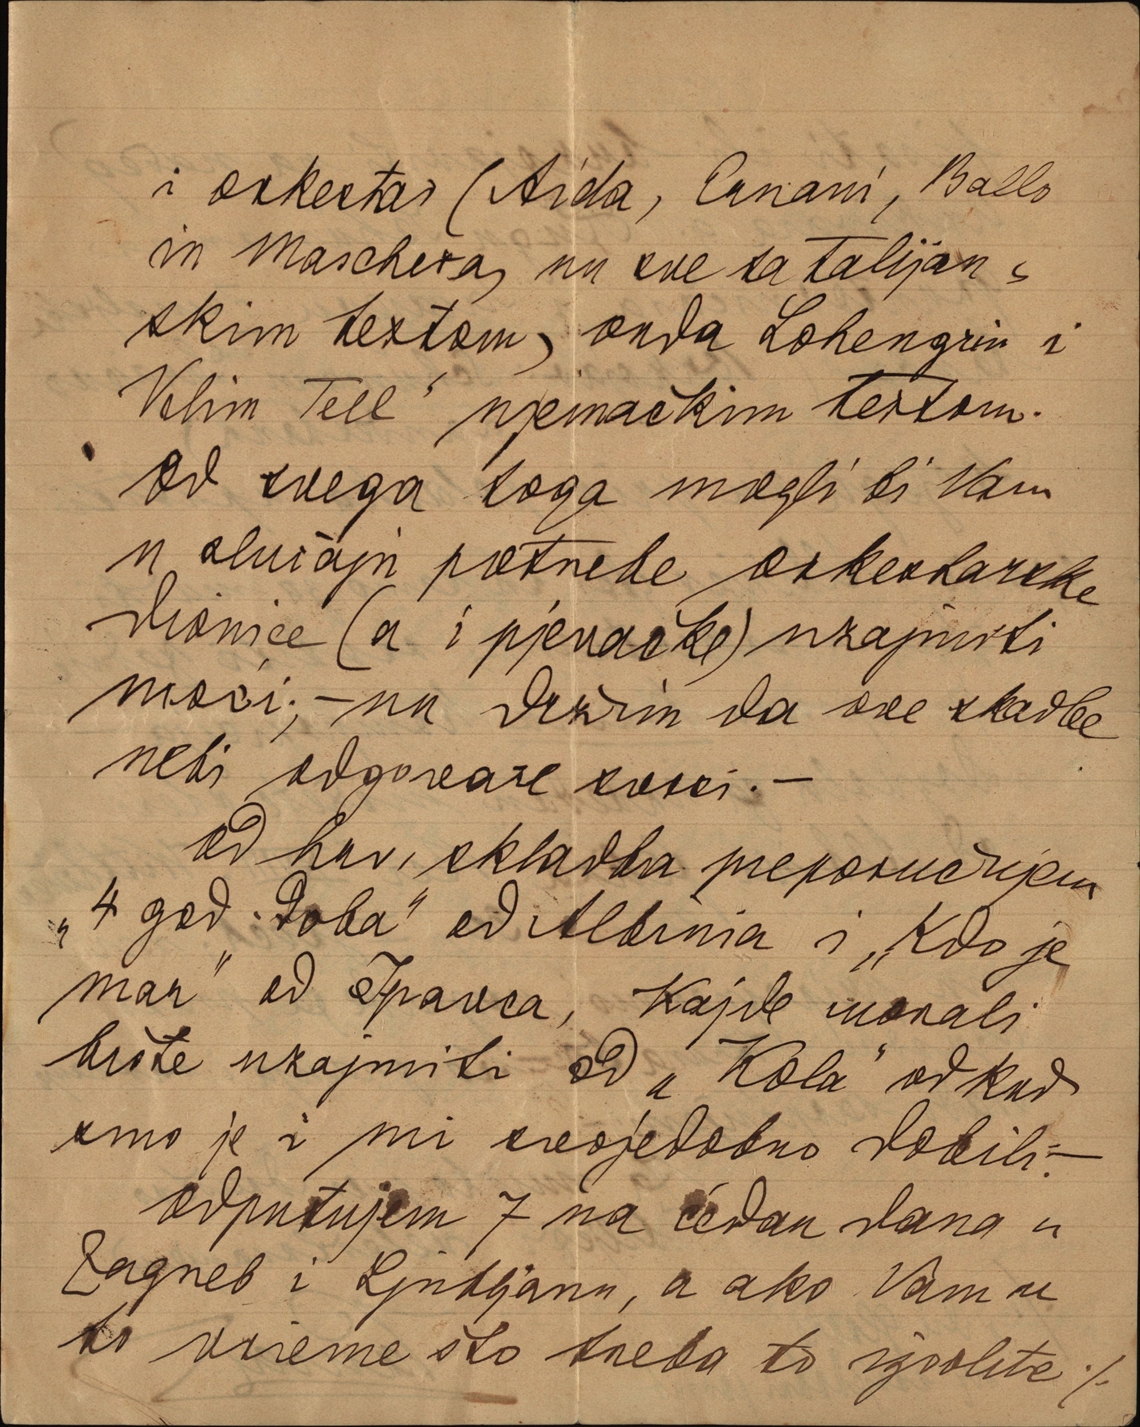 i orkestar (Aida, Ernani, Ballo
in Maschera, nu sve sa talijan-
skim textom, onda Lohengrin i
Vilim Tell" njemačkim textom.
Od svega toga mogli bi Vam
u slučaju potrebe orkestarske
dionice (a i pjevačke) uzajmiti
moći; – nu držim da ove skladbe
nebi odgovarale svrsi. –
Od hrv. skladba preporučujem
„4 god. Doba" od Albinia i „Kdo je
mar" od Ipavca, Kajde morali
biste uzajmiti od „Kola" odkud
smo je i mi svojedobno dobili. –
Odputujem 7 na tjedan dana u
Zagreb i Ljubljanu, a ako Vam u
to vrieme što treba to izvolite ./.